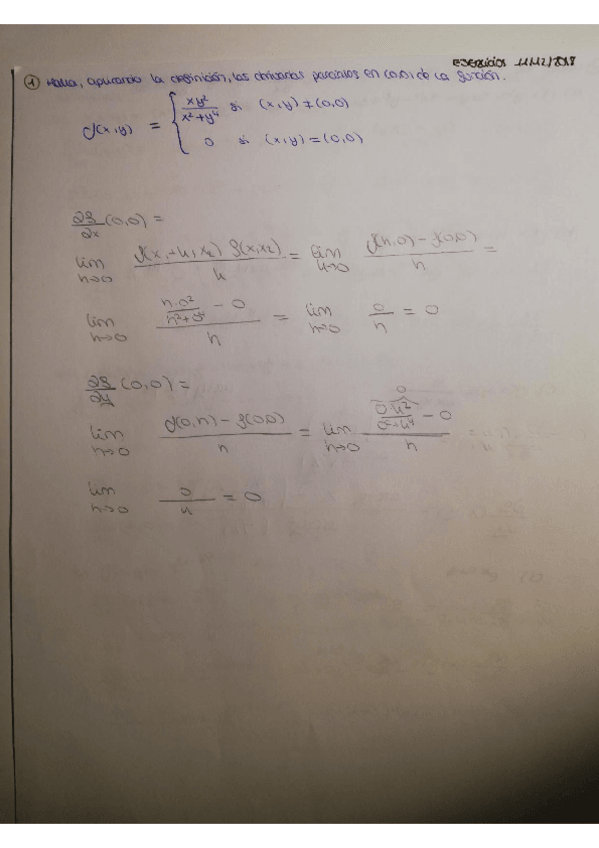 exercicios 11/12/2018
① Halla, aplicando la definición, las derivadas parciales en (0,0) de la función.
f(x,y) = { xy²/(x²+y⁴) si (x,y) ≠ (0,0)
0 si (x,y) = (0,0)
∂f/∂x (0,0) =
lim h→0 f(x₁+h, x₂) f(x,x₂) / h = lim h→0 f(h,0) - f(0,0) / h =
lim h→0 (h·0²/(h²+0⁴) - 0) / h = lim h→0 0/h = 0
∂f/∂y (0,0) =
lim h→0 f(0,h) - f(0,0) / h = lim h→0 (0·h²/(0²+h⁴) - 0) / h
0
lim h→0 0/h = 0